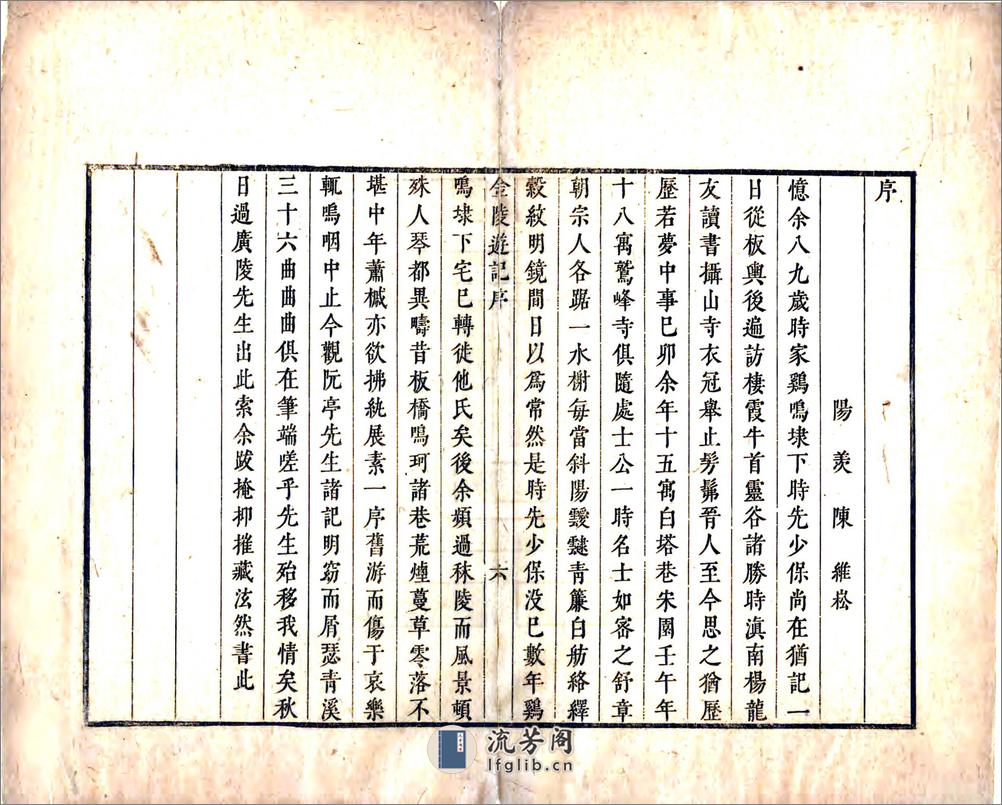 序
陽羨陳維崧
憶余八九歲時家鷄鳴埭下時先少保尚在猶記一
日從板輿後遍訪棲霞牛首靈谷諸勝時滇南楊龍
友讀書攝山寺衣冠舉止髣髴晉人至今思之猶歷
歷若夢中事已卯余年十五寓白塔巷朱園壬午年
十八寓鷲峰寺俱隨處士公一時名士如密之舒章
朝宗人各踞一水榭每當斜陽靉靆青簾白舫絡繹
縠紋明鏡間日以爲常然是時先少保没已數年鷄
金陵遊記序 六
鳴埭下宅已轉徙他氏矣後余頻過秣陵而風景頓
殊人琴都異疇昔板橋鳴珂諸巷荒煙蔓草零落不
堪中年蕭槭亦欲拂紈展素一序舊游而傷于哀樂
輒嗚咽中止今觀阮亭先生諸記明窈而屑瑟青溪
三十六曲曲曲俱在筆端嗟乎先生殆移我情矣秋
日過廣陵先生出此索余跋掩抑摧藏泫然書此
流芳阁
lfglib.cn